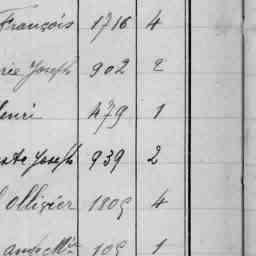 François 1716 4
rie Joseph 902 2
enri 479 1
ste Joseph 939 2
ollivier 1809 4
109 1